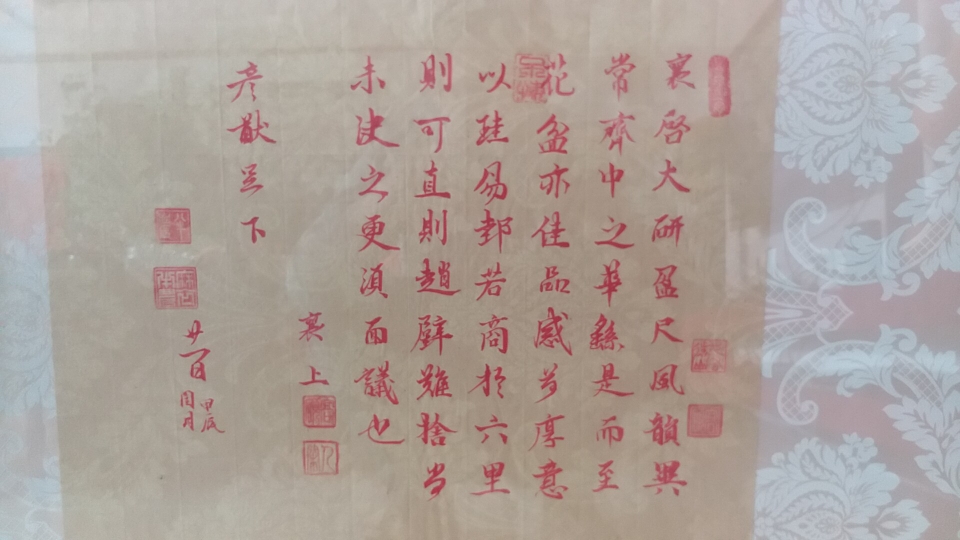 襄啓大研盈尺風韻異
常齊中之華繇是而至
花盆亦佳品感荷厚意
以珪易邽若商於六里
則可直則趙璧難捨尚
未決之更須面議也
襄上
彥猷足下
廿一日
甲辰
閏月